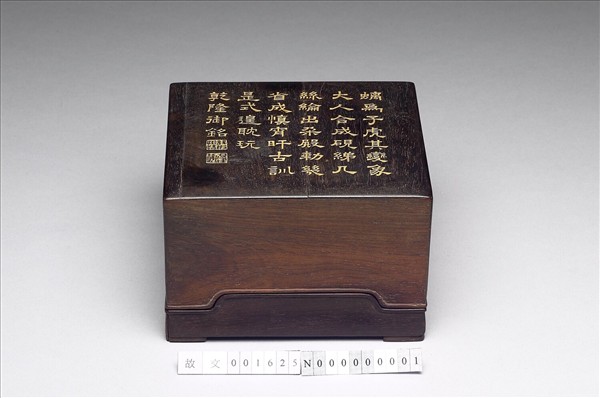 螭為子虎其變象
大人合成硯綈几
絲綸出朵殿勅幾
省成慎宵旰古訓
是式遑耽玩
乾隆御銘
故文001625N000000001